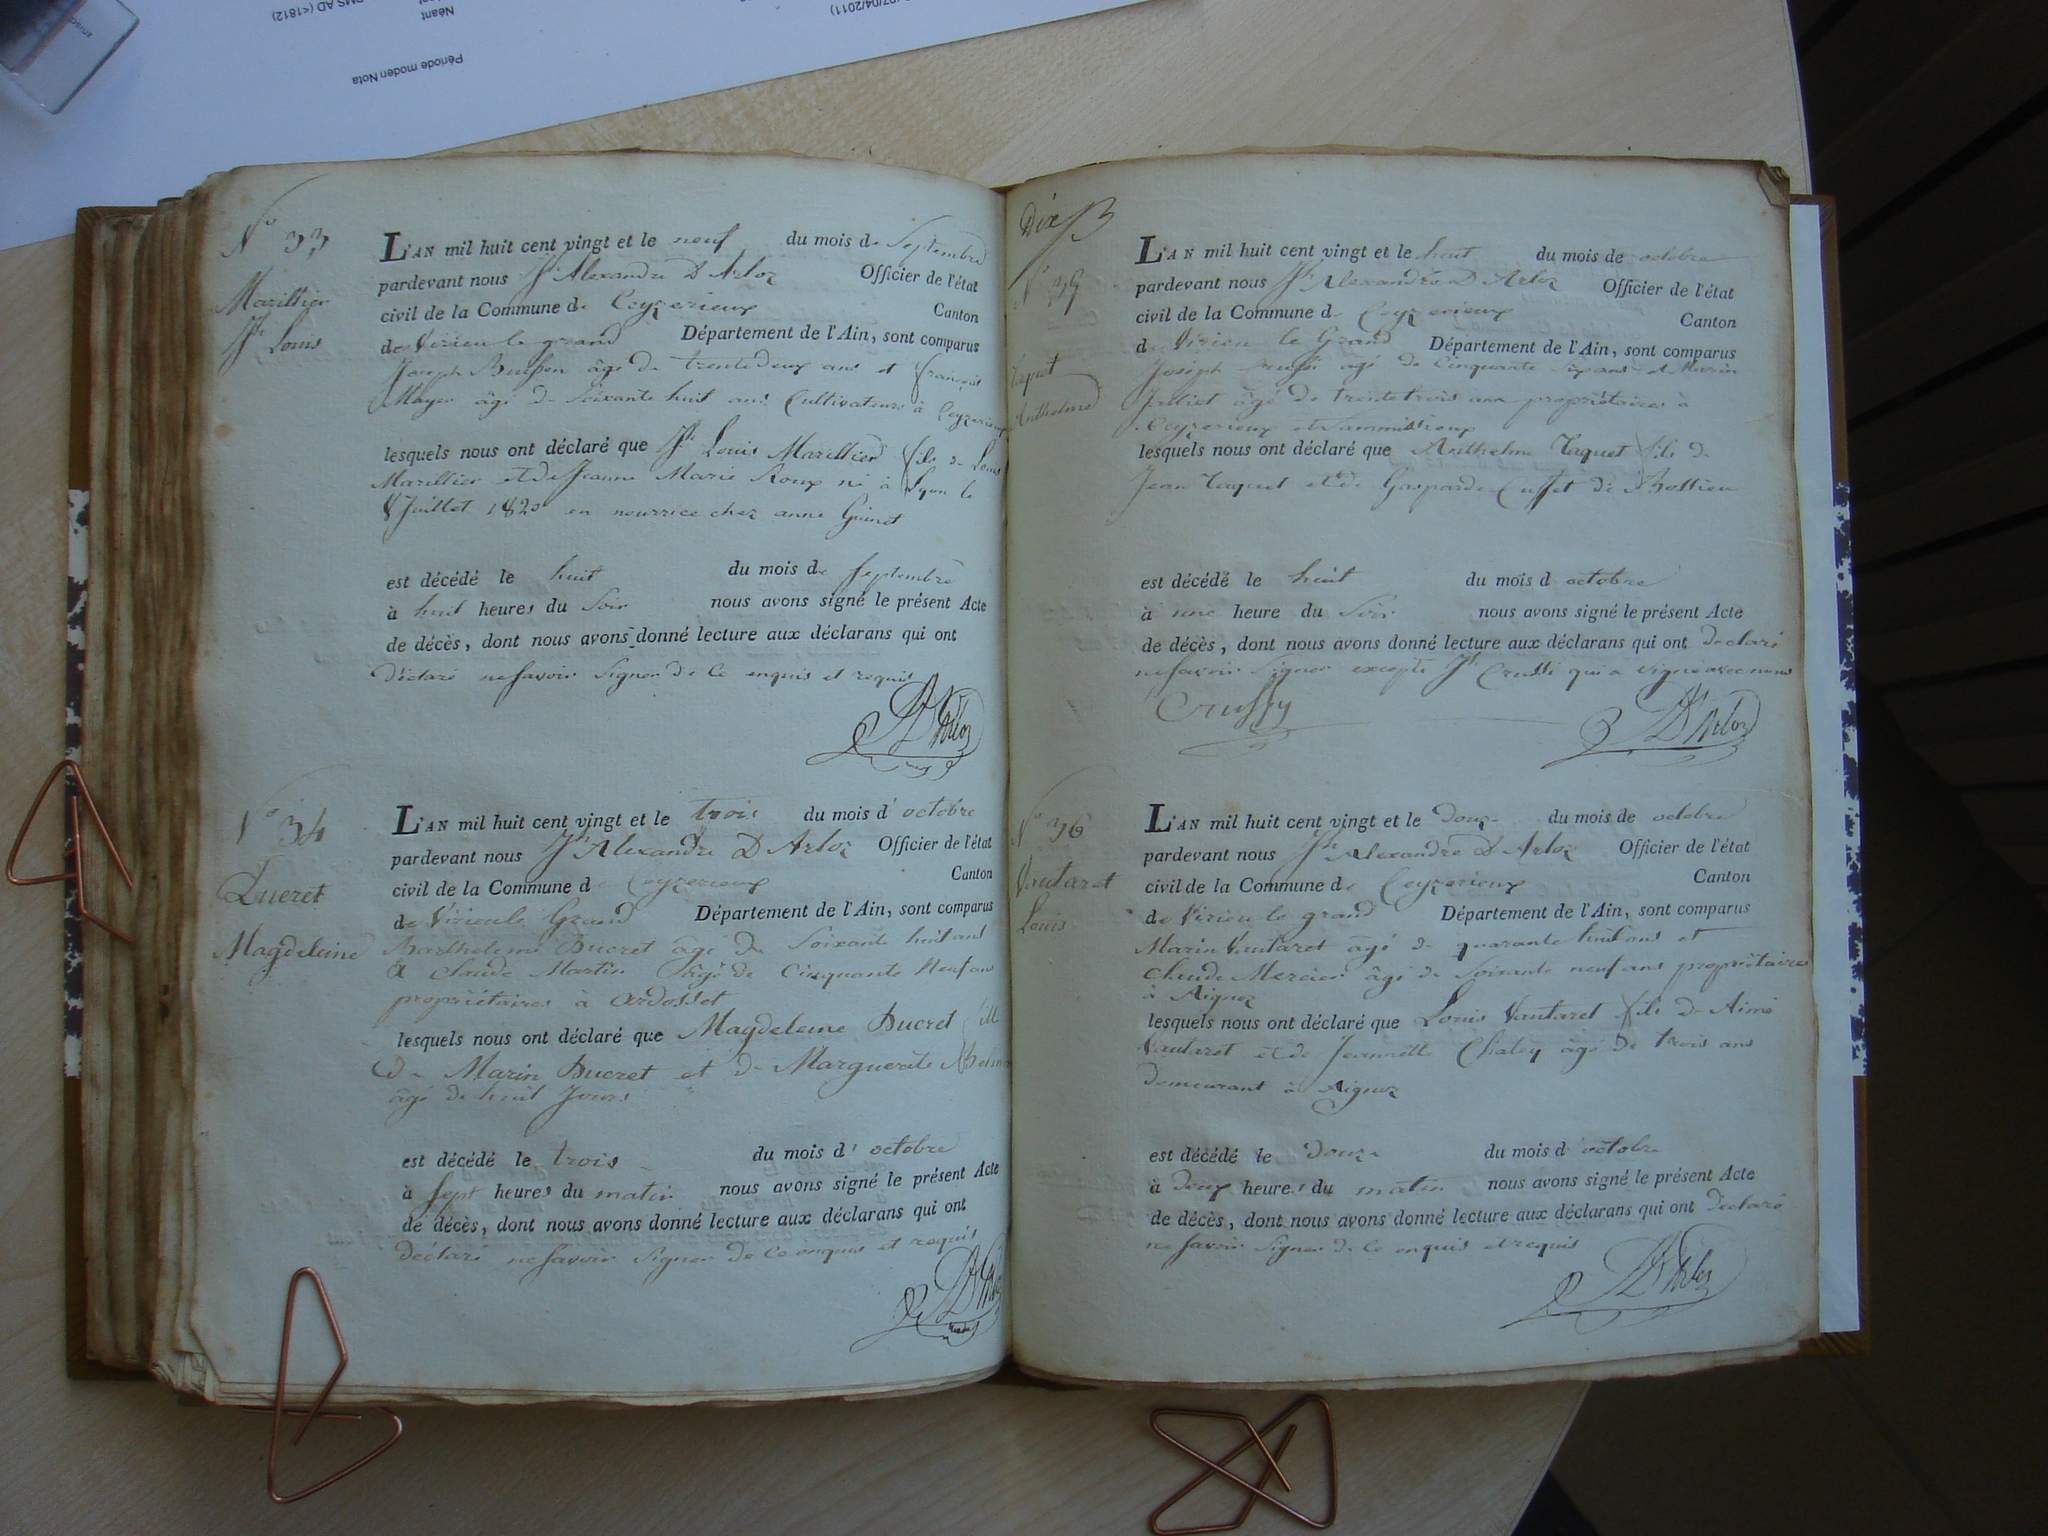 PMS AD (<1812)
Néant
Période moden Nota
/07/04/2011)
N° 33
Marillier
Jh Louis
L'AN mil huit cent vingt et le neuf du mois de Septembre
pardevant nous Jh Alexandre D Arloz Officier de l'état
civil de la Commune de Ceyzerieux Canton
de Virieu le grand Département de l'Ain, sont comparus
Joseph Buisson âgé de trente deux ans et françois
Mayer âgé de Soixante huit ans Cultivateurs à Ceyzerieux
lesquels nous ont déclaré que Jh Louis Marillier fils de Louis
Marillier et de Jeanne Marie Roux né à Lyon le
8 Juillet 1820 en nourrice chez anne Guinet
est décédé le huit du mois de septembre
à huit heures du Soir nous avons signé le présent Acte
de décès, dont nous avons donné lecture aux déclarans qui ont
déclaré ne savoir Signer de Ce enquis et requis
D'Arloz
N° 34
Ducret
Magdeleine
L'AN mil huit cent vingt et le trois du mois d'octobre
pardevant nous Jh Alexandre D Arloz Officier de l'état
civil de la Commune de Ceyzerieux Canton
de Virieu le Grand Département de l'Ain, sont comparus
Barthelemi Ducret âgé de Soixante huit ans
& Claude Martin âgé de Cinquante Neuf ans
propriétaires à Ardosset
lesquels nous ont déclaré que Magdeleine Ducret fille
de Marin Ducret et de Marguerite
âgé de huit Jours
est décédé le trois du mois d'octobre
à sept heures du matin nous avons signé le présent Acte
de décès, dont nous avons donné lecture aux déclarans qui ont
déclaré ne savoir Signer de Ce enquis et requis
D'Arloz
Dix
N° 35
Taquet
Anthelme
L'AN mil huit cent vingt et le huit du mois de octobre
pardevant nous Jh Alexandre D Arloz Officier de l'état
civil de la Commune d Ceyzerieux Canton
d Virieu le Grand Département de l'Ain, sont comparus
Joseph Crussi agé de Cinquante six ans et Marin
Julliet âgé de trente trois ans propriétaires à
Ceyzerieux et
lesquels nous ont déclaré que Anthelme Taquet fils de
Jean Taquet et de Gasparde Cusset de
est décédé le huit du mois d octobre
à une heure du Soir nous avons signé le présent Acte
de décès, dont nous avons donné lecture aux déclarans qui ont declaré
ne savoir Signer excepté Jh Crussi qui a signé avec nous
Crussy
D'Arloz
N° 36
Vautaret
Louis
L'AN mil huit cent vingt et le douze du mois de octobre
pardevant nous Jh Alexandre D Arloz Officier de l'état
civil de la Commune de Ceyzerieux Canton
de Virieu le grand Département de l'Ain, sont comparus
Marin Vautaret âgé de quarante huit ans et
Claude Mercier âgé de Soixante neuf ans propriétaires
à Aignoz
lesquels nous ont déclaré que Louis Vautaret fils de Aimé
Vautaret et de Jeannette Chaley âgé de trois ans
demeurant à Aignoz
est décédé le douze du mois d'octobre
à deux heures du matin nous avons signé le présent Acte
de décès, dont nous avons donné lecture aux déclarans qui ont déclaré
ne savoir Signer de Ce enquis et requis
D'Arloz